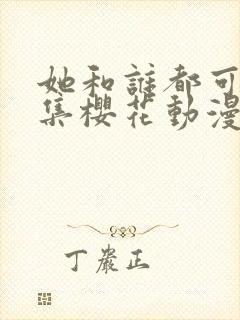 她和誰都可
集櫻花動漫
丁嚴正